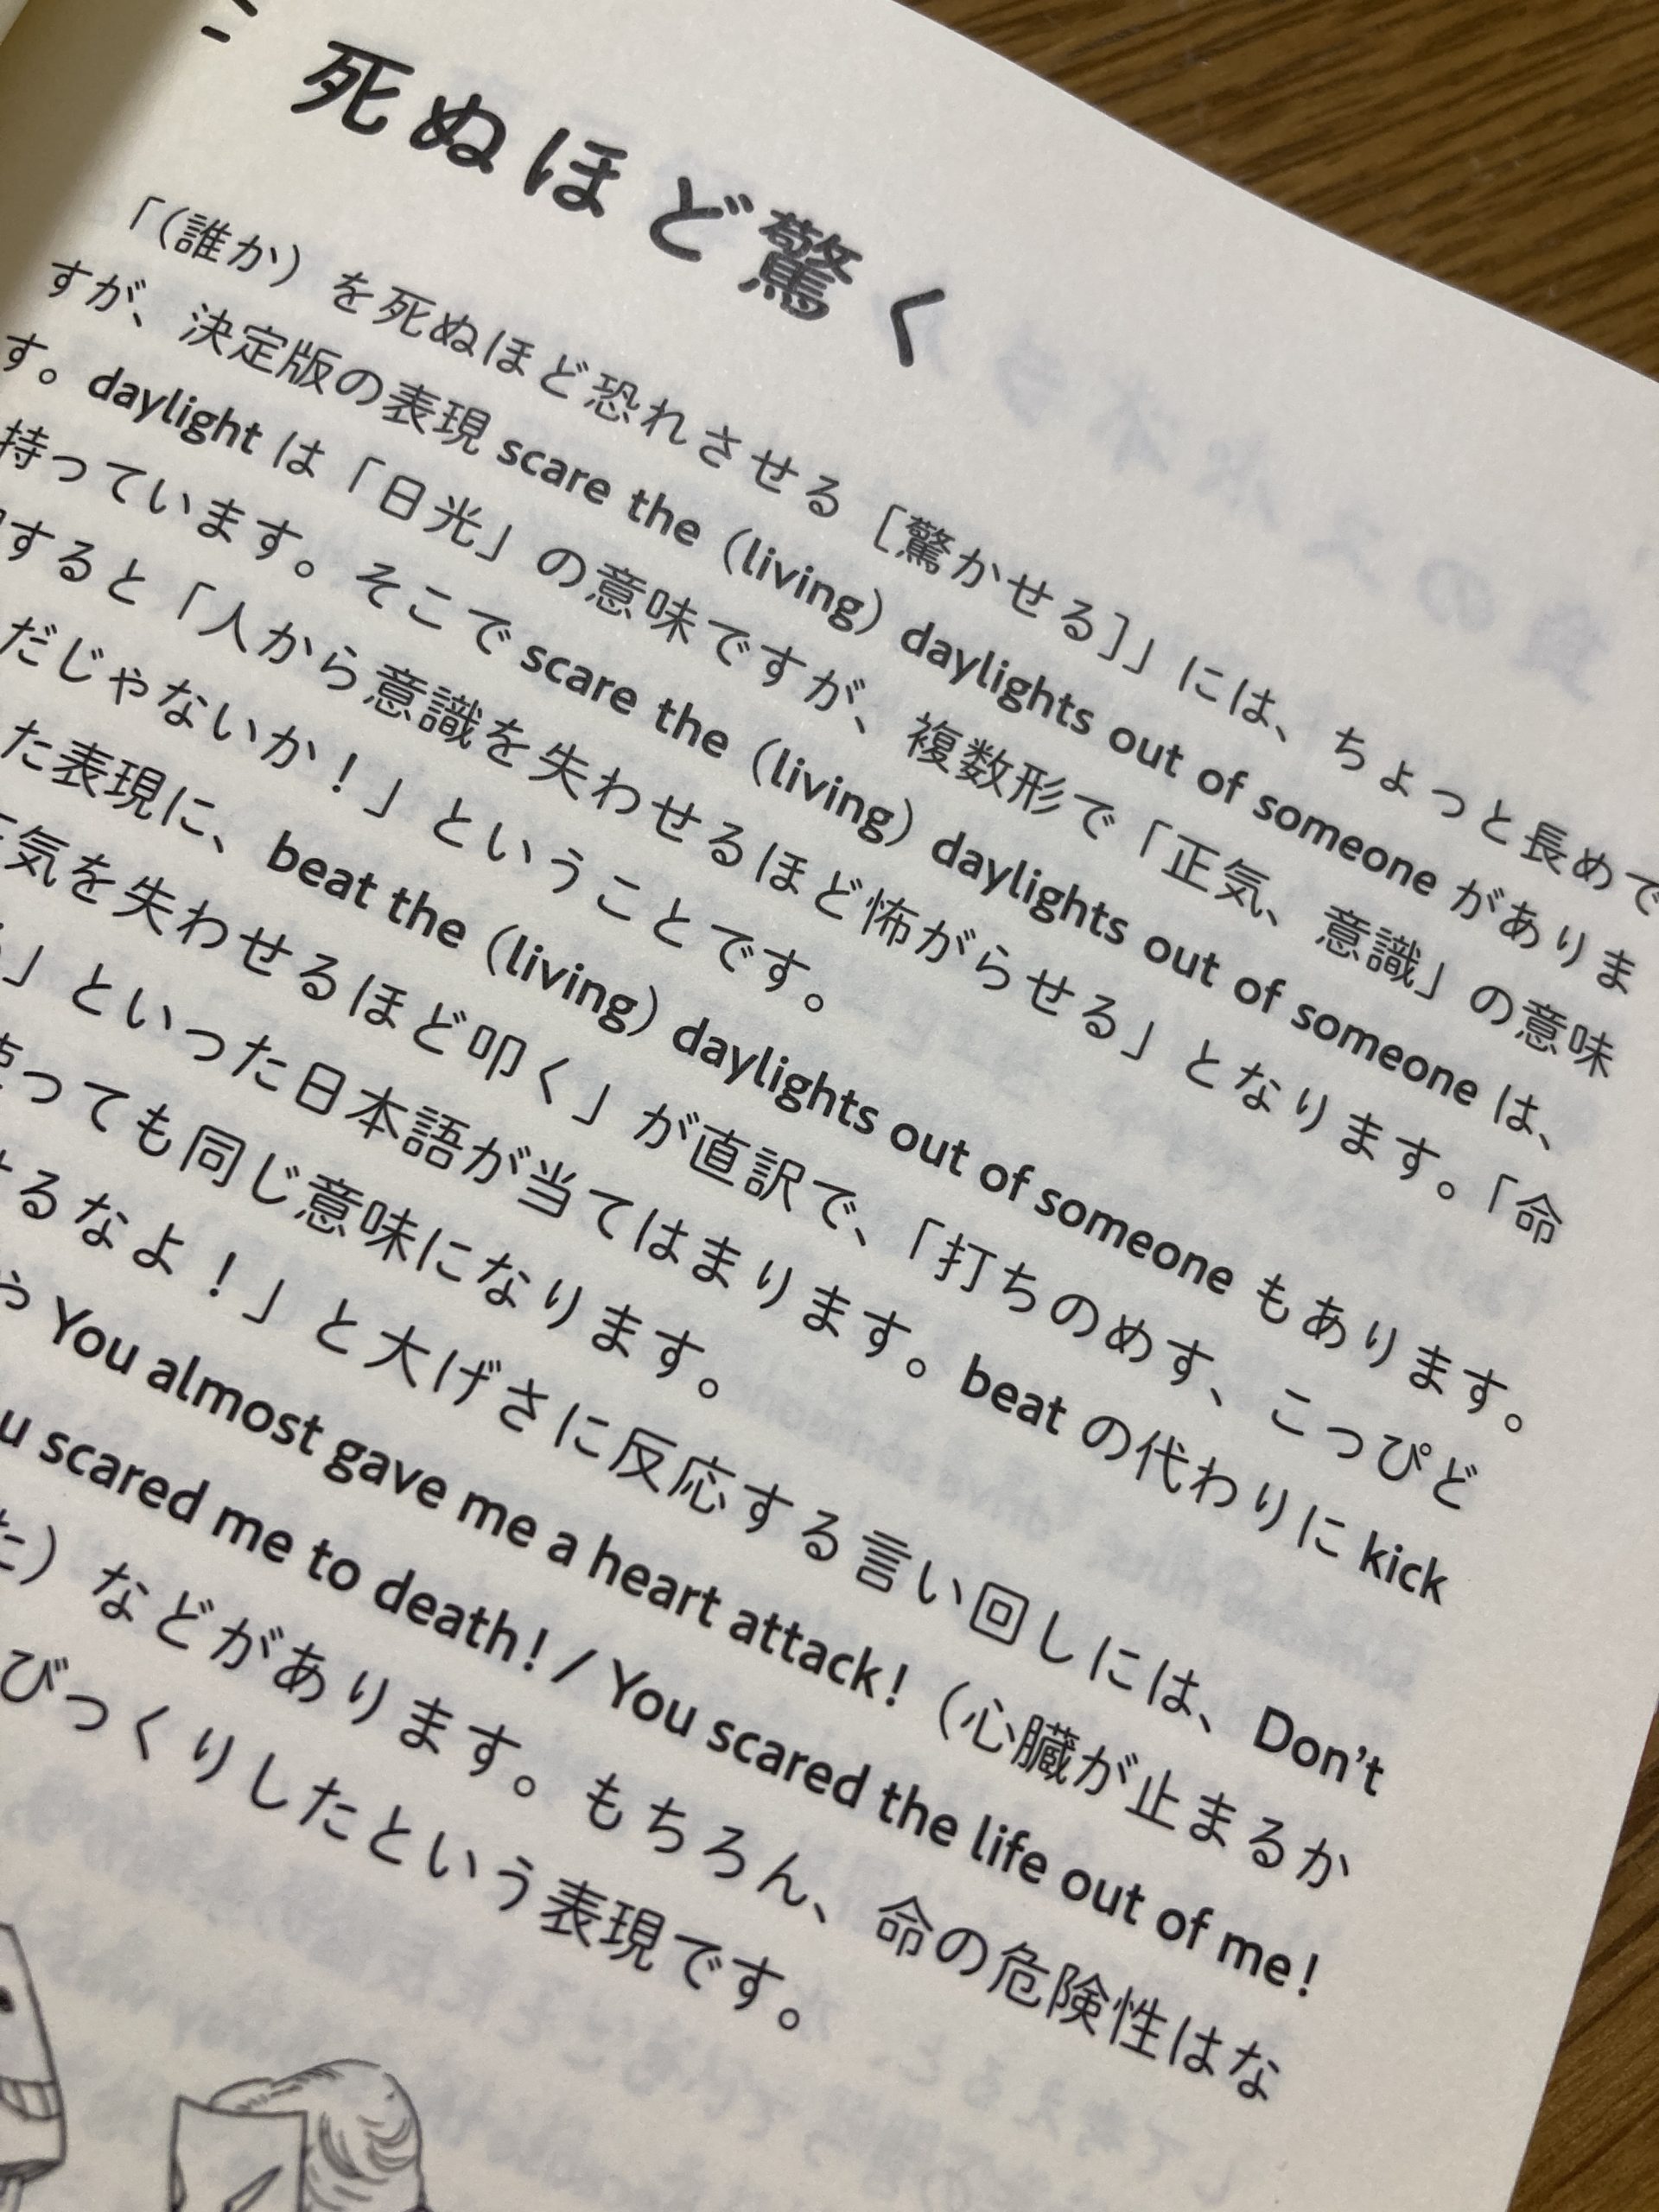 死ぬほど驚く
「(誰か)を死ぬほど恐れさせる[驚かせる]」には、ちょっと長めで
すが、決定版の表現 scare the (living) daylights out of someone がありま
す。daylight は「日光」の意味ですが、複数形で「正気、意識」の意味
持っています。そこで scare the (living) daylights out of someone は、
すると「人から意識を失わせるほど怖がらせる」となります。「命
だじゃないか!」ということです。
た表現に、beat the (living) daylights out of someone もあります。
気を失わせるほど叩く」が直訳で、「打ちのめす、こっぴど
」といった日本語が当てはまります。beat の代わりに kick
っても同じ意味になります。
るなよ!」と大げさに反応する言い回しには、Don't
You almost gave me a heart attack!(心臓が止まるか
u scared me to death! / You scared the life out of me!
た)などがあります。もちろん、命の危険性はな
びっくりしたという表現です。